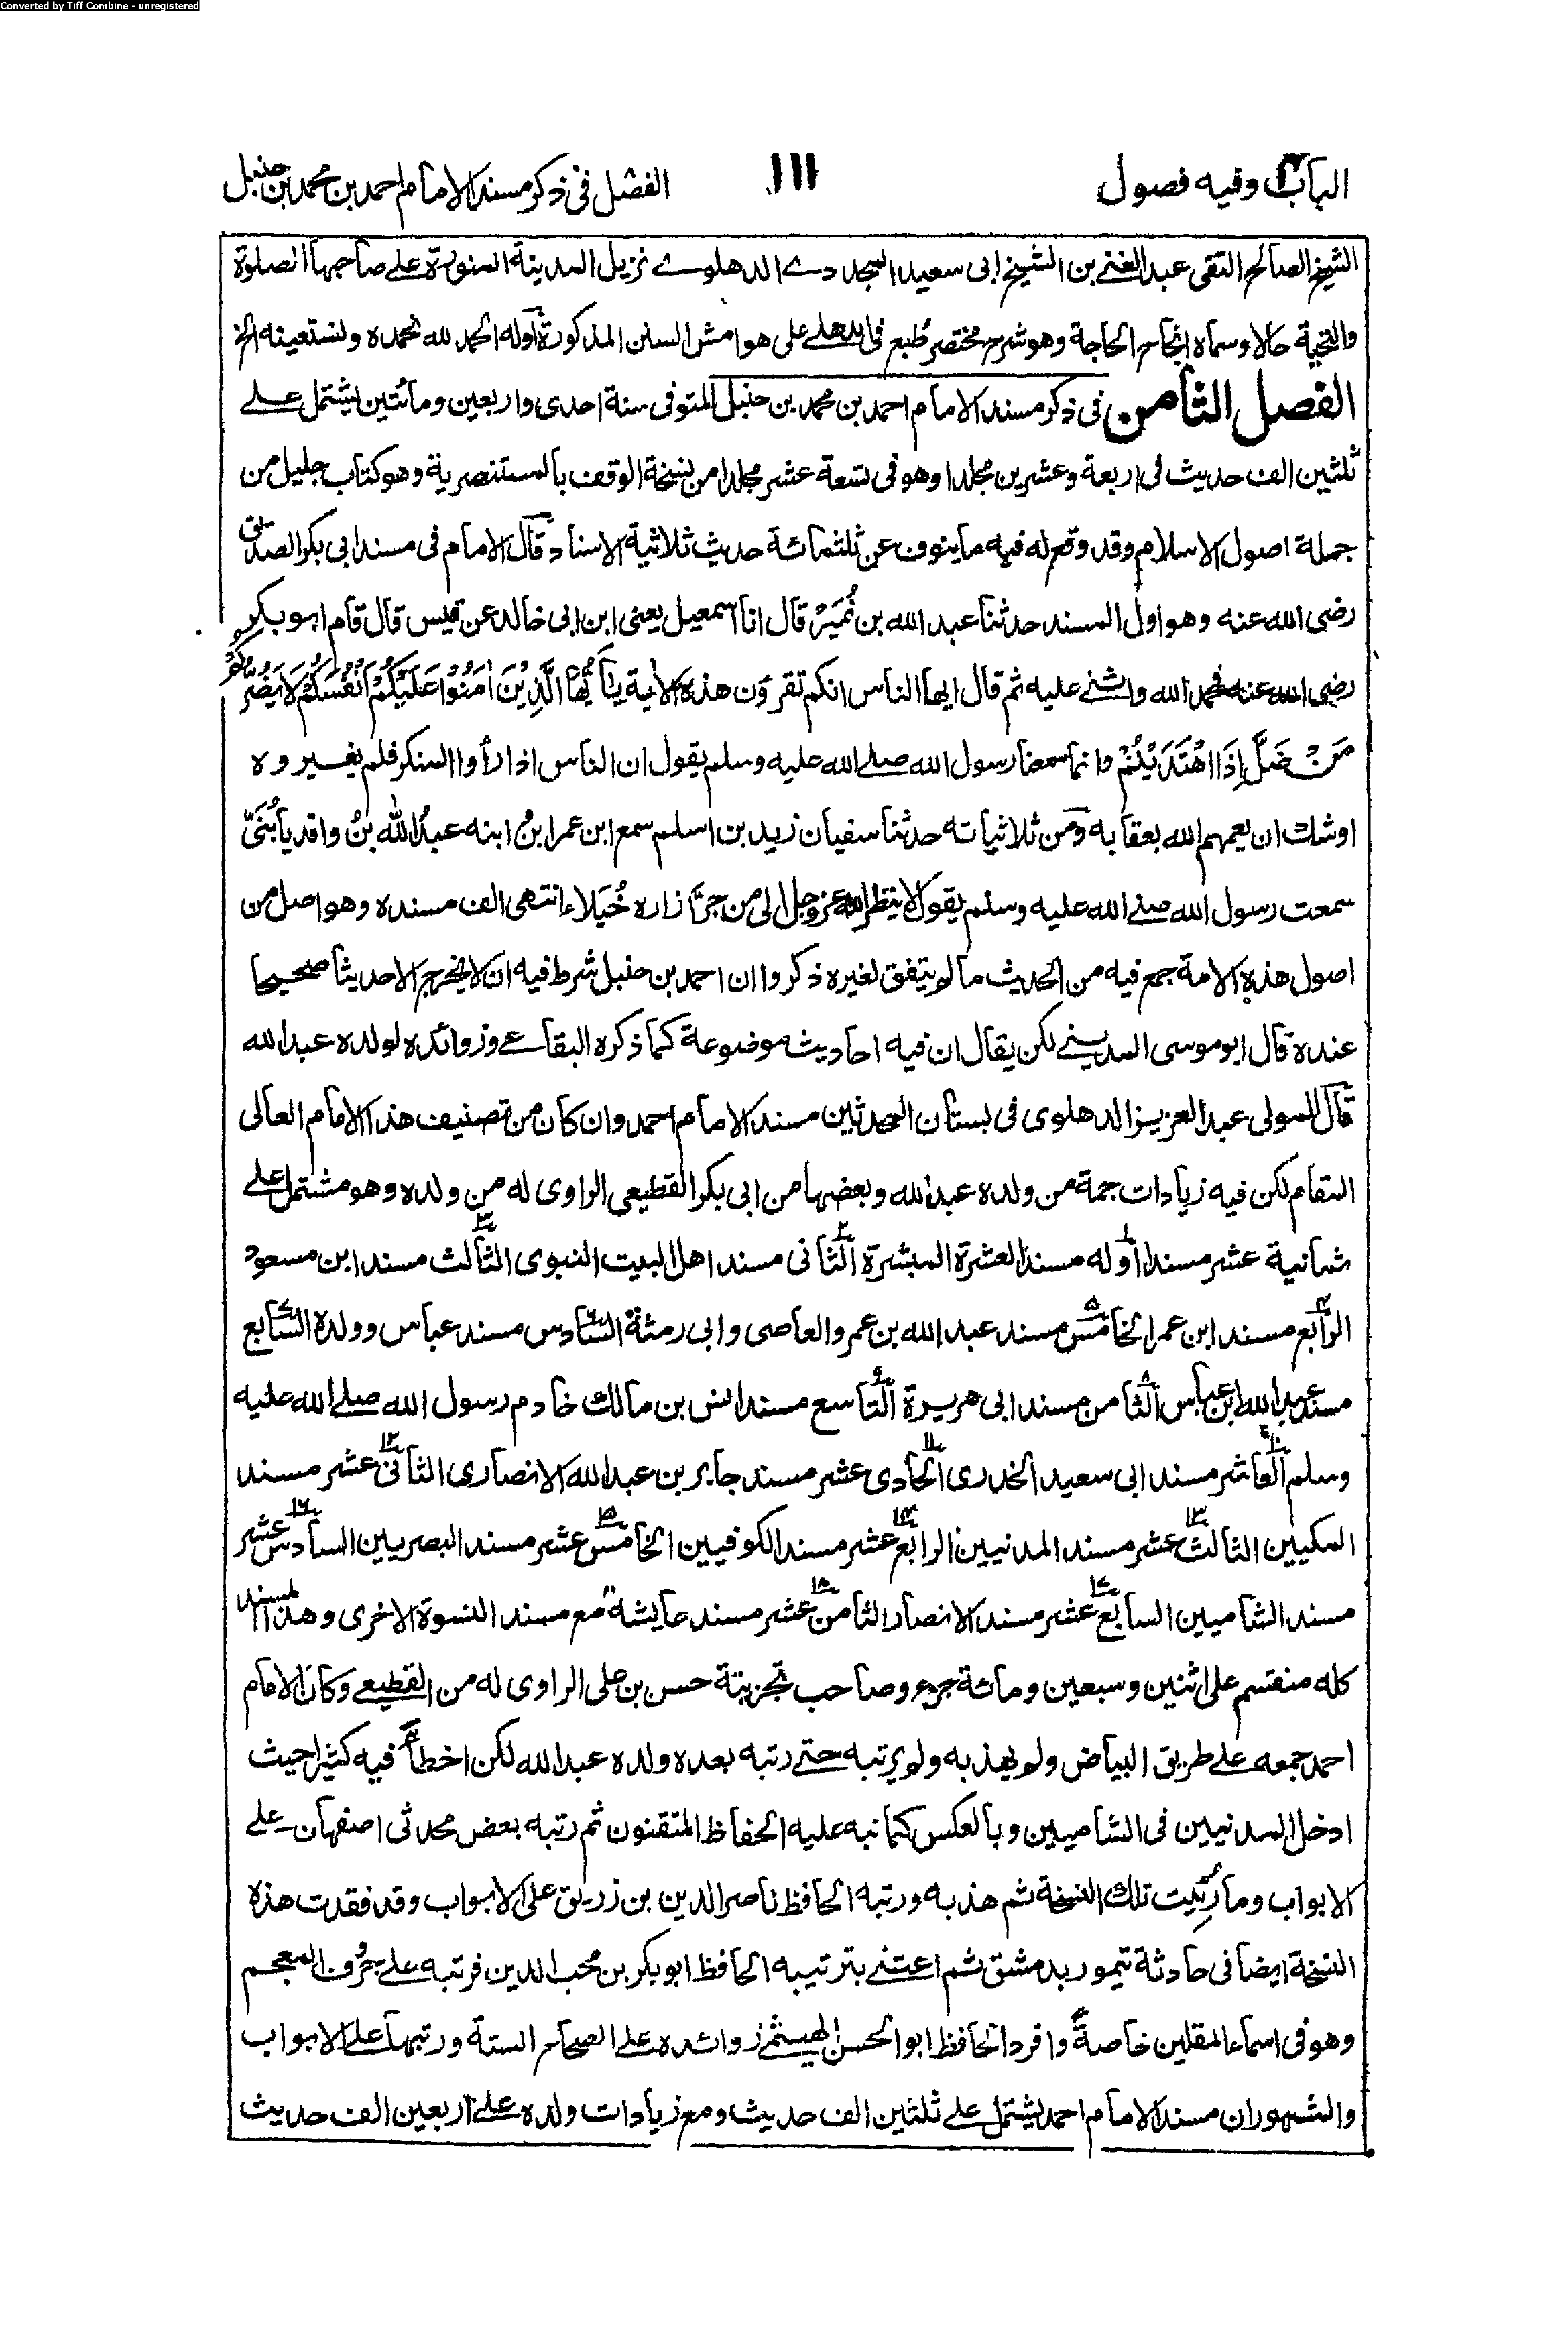 Converted by Tiff Combine - unregistered
الباب وفيه فصول
١١١
الفصل في ذكر مسند الامام احمد بن محمد بن حنبل
الشيخ الصالح التقى عبد الغني بن الشيخ ابى سعيد المجددے الدهلوے نزيل المدينة المنورة على صاحبها الصلوة
والتحية حالا وسماه انجاح الحاجة وهو شرح مختصر طبع في الدهلے على هوامش السنن المذكورة اوله الحمد لله نحمده ونستعينه الخ
الفصل الثامن في ذكر مسند الامام احمد بن محمد بن حنبل المتوفى سنة احدى واربعين ومائتين يشتمل علے
ثلثين الف حديث في اربعة وعشرين مجلدا وهو فى تسعة عشر مجلدا من نسخة الوقف بالمستنصرية وهو كتاب جليل من
جملة اصول الاسلام وقد وقع له فيه ما ينوف عن ثلثمائة حديث ثلاثية الاسناد قال الامام فى مسند ابى بكر الصديق
رضى الله عنه وهو اول المسند حدثنا عبد الله بن نُمَيْر قال انا اسمعيل يعنى ابن ابى خالد عن قيس قال قام ابو بكر
رضى الله عنه فحمد الله واثنے عليه ثم قال ايها الناس انكم تقرؤن هذه الاية يٰاَيُّهَا الَّذِيْنَ اٰمَنُوْا عَلَيْكُمْ اَنْفُسَكُمْ لَا يَضُرُّكُمْ
مَنْ ضَلَّ اِذَا اهْتَدَيْتُمْ وانما سمعنا رسول الله صلے الله عليه وسلم يقول ان الناس اذا رأوا المنكر فلم يغيروه
اوشك ان يعمهم الله بعقابه ومن ثلاثياته حدثنا سفيان زيد بن اسلم سمع ابن عمر ابن ابنه عبدُ الله بنُ واقد يا بُنَىَّ
سمعت رسول الله صلے الله عليه وسلم يقول لا ينظر الله عز وجل الى من جرَّ ازاره خُيَلاء انتهى الف مسنده وهو اصل من
اصول هذه الامة جمع فيه من الحديث ما لم يتفق لغيره ذكروا ان احمد بن حنبل شرط فيه ان لا يخرج الا حديثا صحيحا
عنده قال ابو موسى المدينے لكن يقال ان فيه احاديث موضوعة كما ذكره البقاعے وزوائده لولده عبد الله
قال المولى عبد العزيز الدهلوى فى بستان المحدثين مسند الامام احمد وان كان من تصنيف هذا الامام العالى
المقام لكن فيه زيادات جمة من ولده عبد الله وبعضها من ابى بكر القطيعى الراوى له من ولده وهو مشتمل علے
ثمانية عشر مسندا اوله مسند العشرة المبشرة الثانى مسند اهل البيت النبوى الثالث مسند ابن مسعود
الرابع مسند ابن عمر الخامس مسند عبد الله بن عمرو العاصى وابى رمثة السادس مسند عباس وولده السابع
مسند عبد الله ابن عباس الثامن مسند ابى هريرة التاسع مسند انس بن مالك خادم رسول الله صلے الله عليه
وسلم العاشر مسند ابى سعيد الخدرى الحادى عشر مسند جابر بن عبد الله الانصارى الثانى عشر مسند
المكيين الثالث عشر مسند المدنيين الرابع عشر مسند الكوفيين الخامس عشر مسند البصريين السادس عشر
مسند الشاميين السابع عشر مسند الانصار الثامن عشر مسند عايشة مع مسند النسوة الاخرى وهذا المسند
كله منقسم على اثنين وسبعين ومائة جزء وصاحب تجزيته حسن بن على الراوى له من القطيعے وكان الامام
احمد جمعه علے طريق البياض ولم يهذبه ولم يرتبه حتے رتبه بعده ولده عبد الله لكن اخطأ فيه كثيرا حيث
ادخل المدنيين فى الشاميين وبالعكس كما نبه عليه الحفاظ المتقنون ثم رتبه بعض محدثى اصفهان علے
الابواب وما رُئيت تلك النسخة ثم هذبه ورتبه الحافظ ناصر الدين بن زريق على الابواب وقد فقدت هذه
النسخة ايضا فى حادثة تيمور بدمشق ثم اعتنے بترتيبه الحافظ ابو بكر بن محب الدين فرتبه علے حروف المعجم
وهو فى اسماء المقلين خاصةً وافرد الحافظ ابو الحسن الهيثمے زوائده علے الصحاح الستة ورتبها علے الابواب
والمشهور ان مسند الامام احمد يشتمل علے ثلثين الف حديث ومع زيادات ولده علے اربعين الف حديث